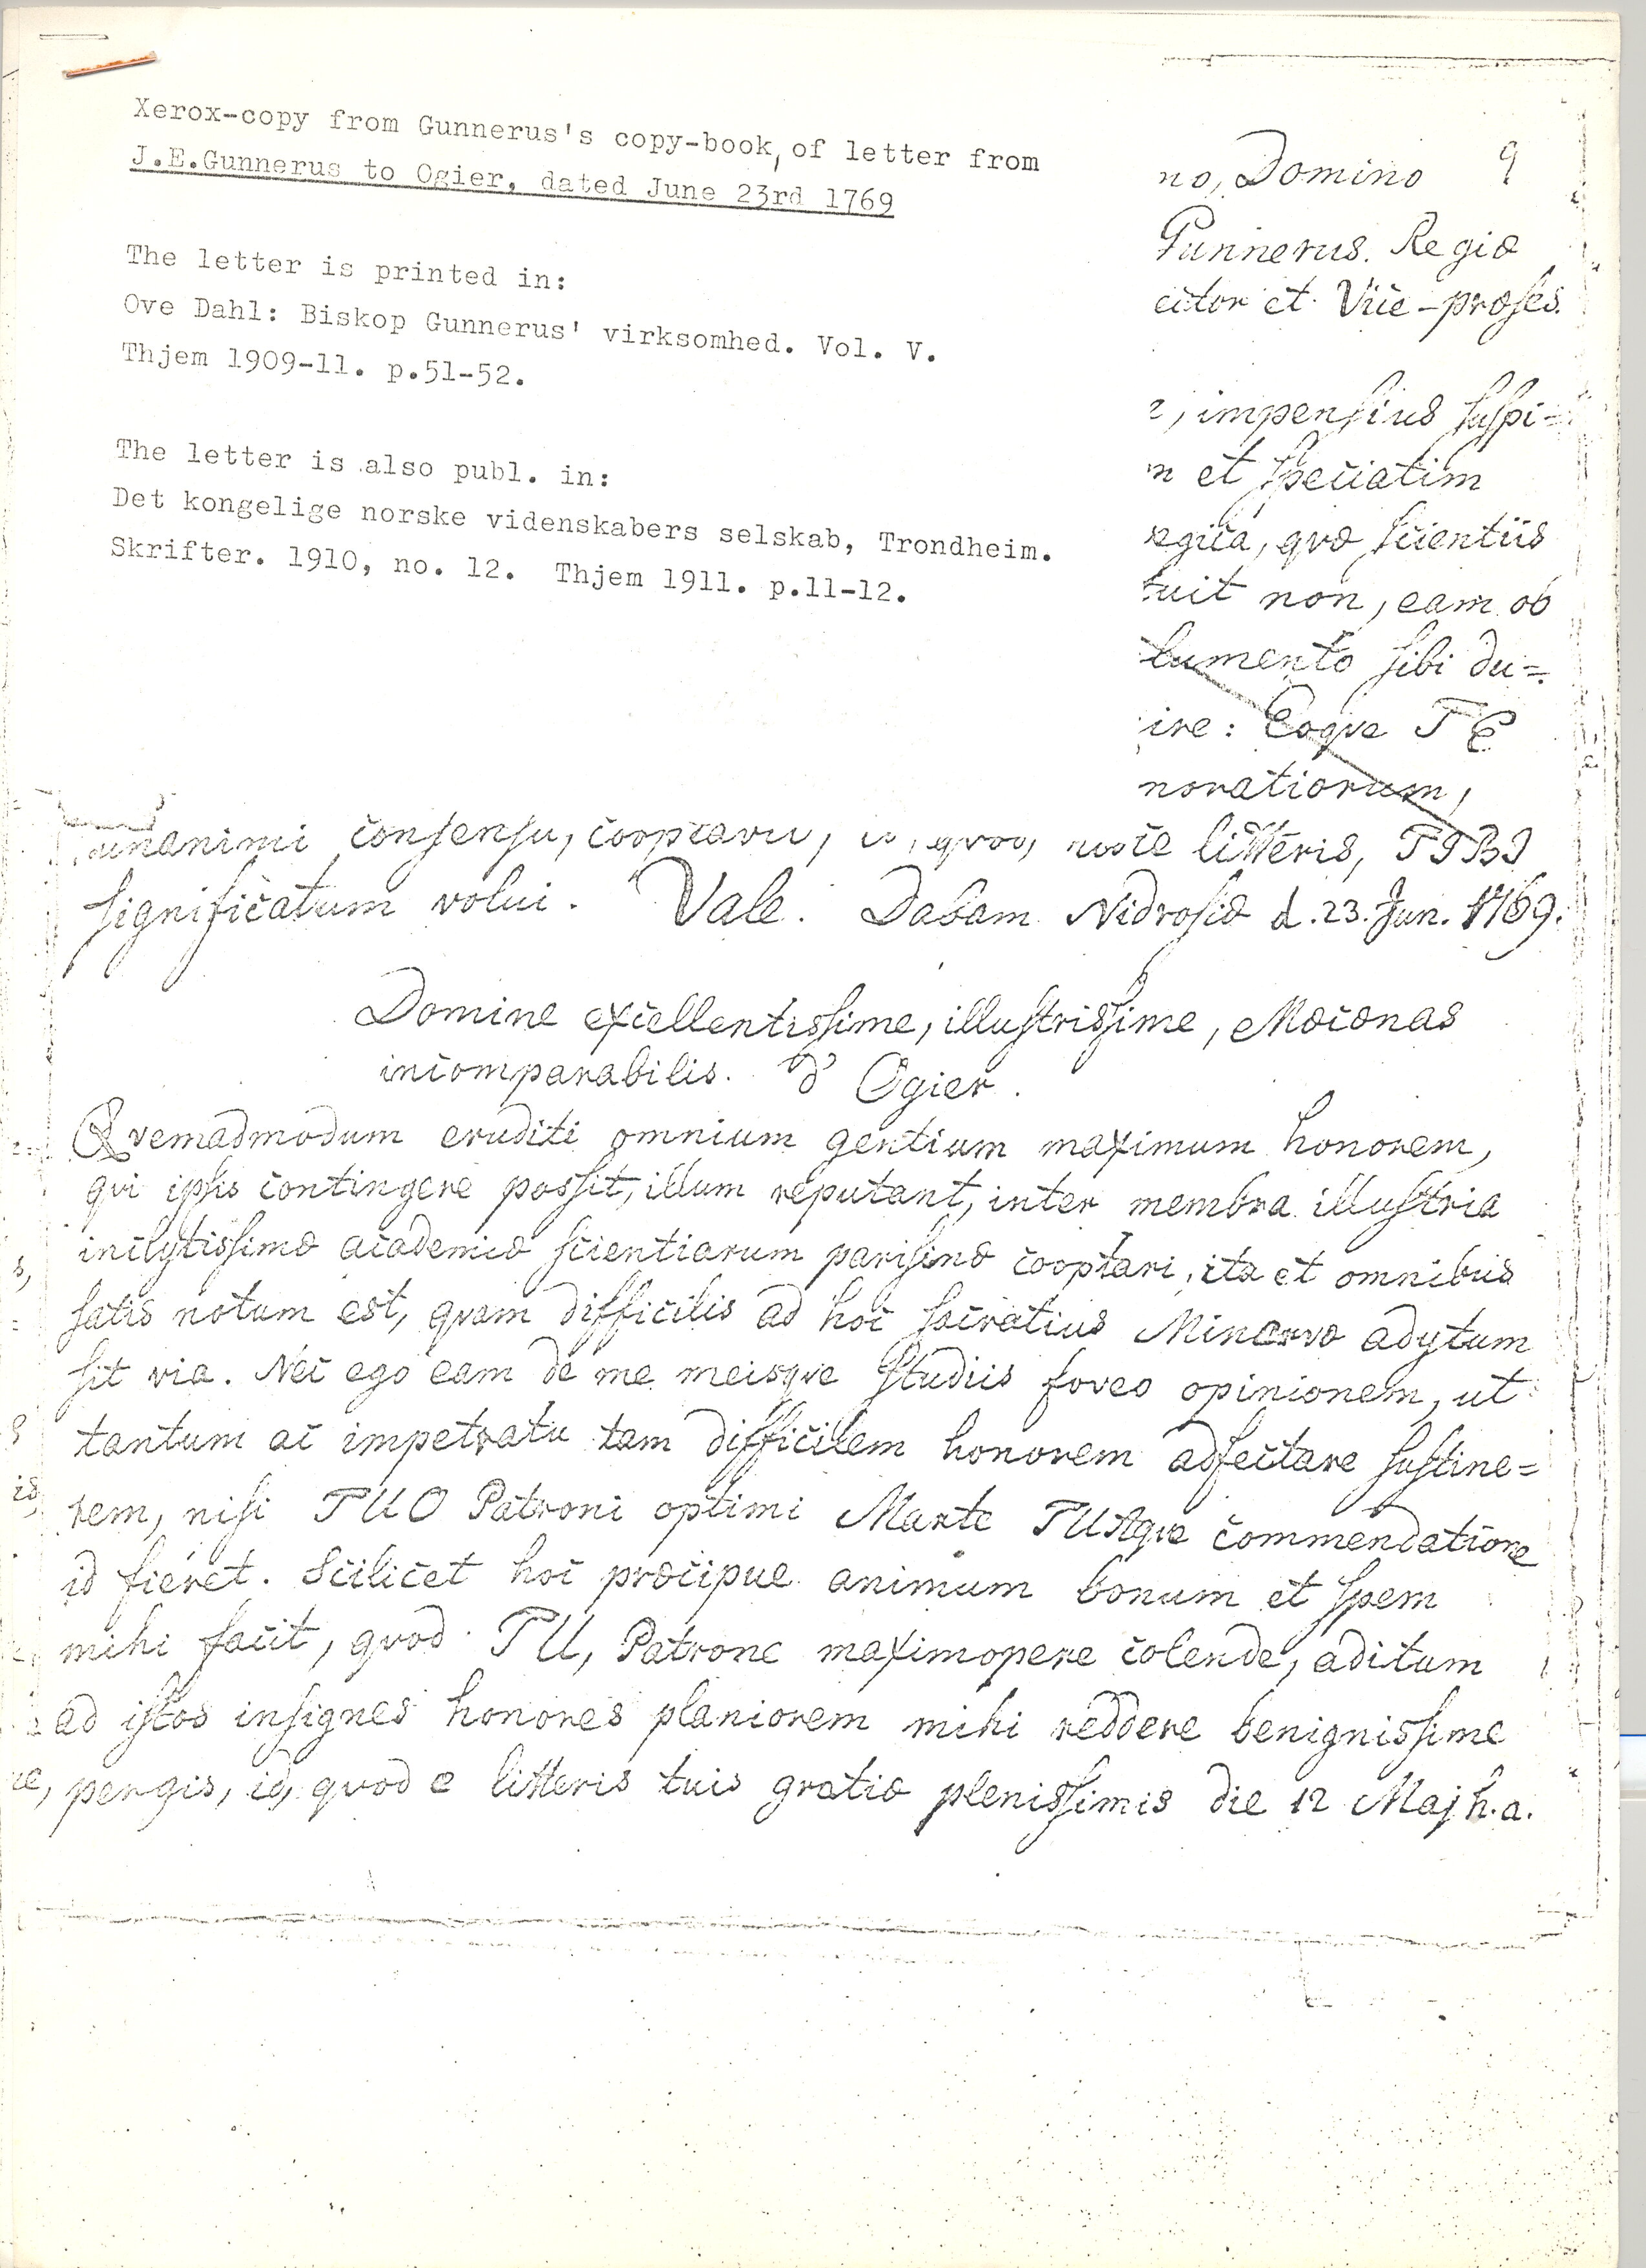 Xerox-copy from Gunnerus's copy-book, of letter from
J.E.Gunnerus to Ogier, dated June 23rd 1769
The letter is printed in:
Ove Dahl: Biskop Gunnerus' virksomhed. Vol. V.
Thjem 1909-11. p.51-52.
The letter is also publ. in:
Det kongelige norske videnskabers selskab, Trondheim.
Skrifter. 1910, no. 12. Thjem 1911. p.11-12.
no, Domino 9
Gunnerus. Regiæ
Vice-præses.
, impensius suspi=
et speciatim
qvæ scientiis
tuit non, eam ob
lumento sibi du=
ire: Eoqve TE
noratiorum,
unanimi consensu, cooptavit, id, qvod, litteris, TIBI
significatum volui. Vale. Dabam Nidrosiæ d. 23. Jun. 1769.
Domine excellentissime, illustrissime, Mæcænas
incomparabilis. d' Ogier.
Qvemadmodum eruditi omnium gentium maximum honorem,
qvi ipsis contingere possit, illum reputant, inter membra illustria
inclytissimæ academiæ scientiarum parisinæ cooptari, ita et omnibus
satis notum est, qvam difficilis ad hoc sacratius Minervæ adytum
sit via. Nec ego eam de me meisqve studiis foveo opinionem, ut
tantum ac impetratu tam difficilem honorem adfectare sustine=
rem, nisi TUO Patroni optimi Marte TUAqve commendatione
id fieret. Scilicet hoc præcipue animum bonum et spem
mihi facit, qvod TU, Patrone maximopere colende, aditum
ad istos insignes honores planiorem mihi reddere benignissime
pergis, id, qvod e litteris tuis gratiæ plenissimis die 12 Maj h.a.